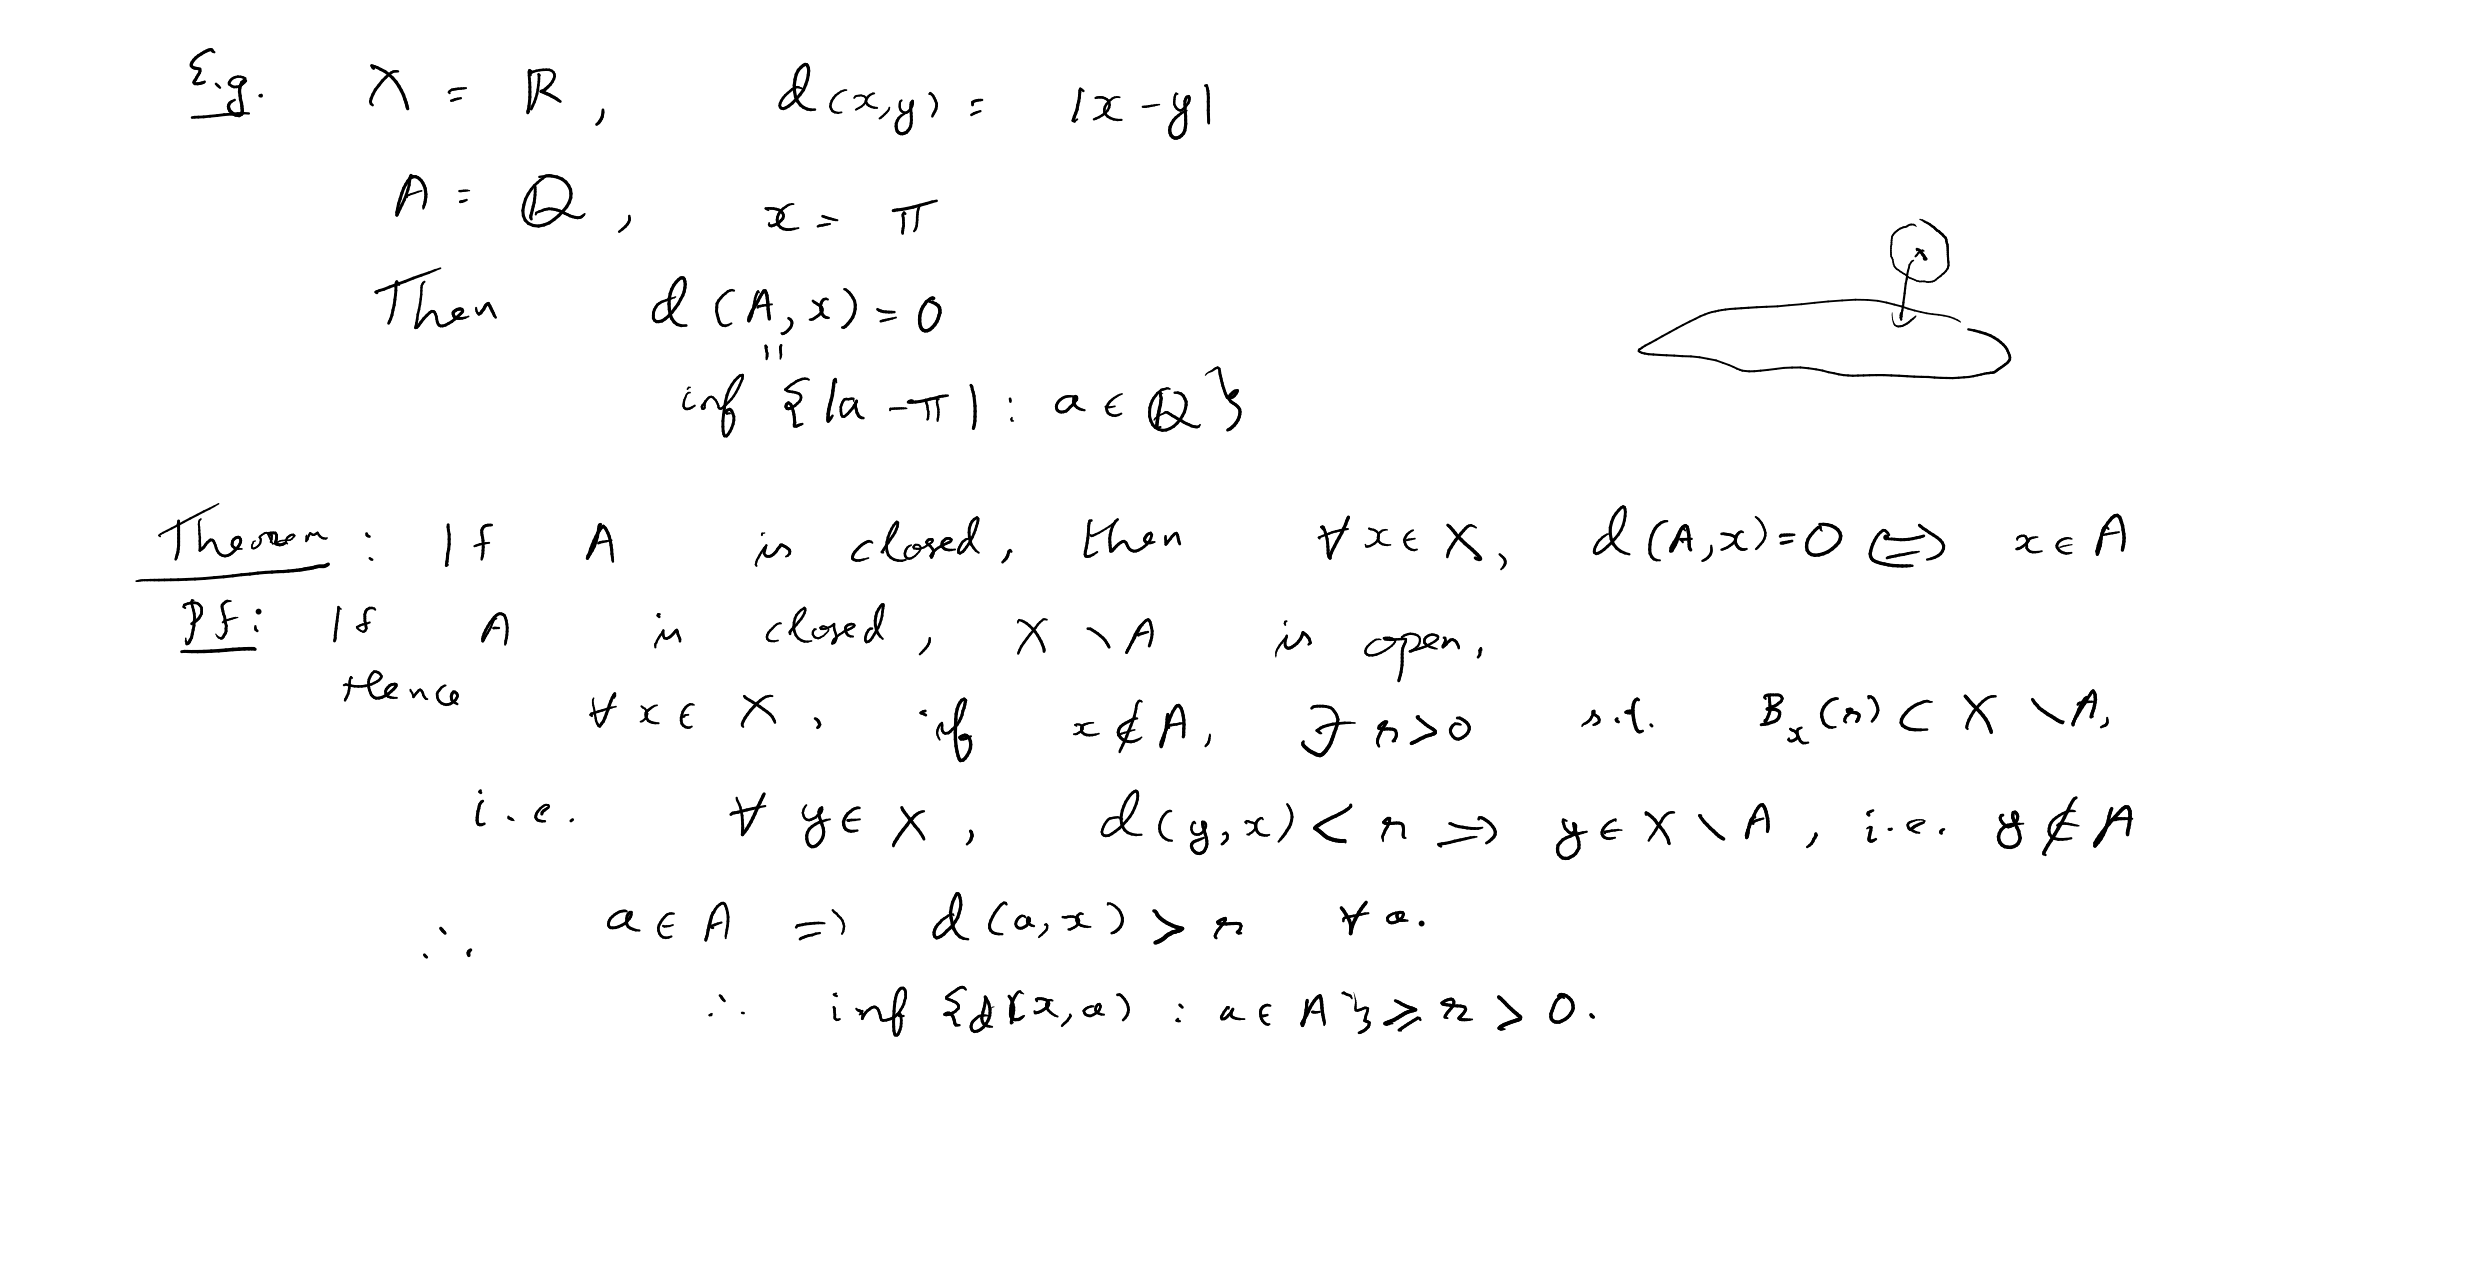 E.g. X = ℝ, d(x,y) = |x-y|
A = ℚ, x = π
Then d(A,x) = 0
=
inf {|a-π| : a ∈ ℚ}
x
Theorem : If A is closed, then ∀ x ∈ X, d(A,x) = 0 ⇔ x ∈ A
Pf: If A is closed, X \ A is open,
Hence ∀ x ∈ X, if x ∉ A, ∃ r>0 s.t. Bₓ(r) ⊂ X \ A,
i.e. ∀ y ∈ X, d(y,x) < r ⇒ y ∈ X \ A, i.e. y ∉ A
∴ a ∈ A ⇒ d(a,x) > r ∀ a.
∴ inf {d(x,a) : a ∈ A} ≥ r > 0.